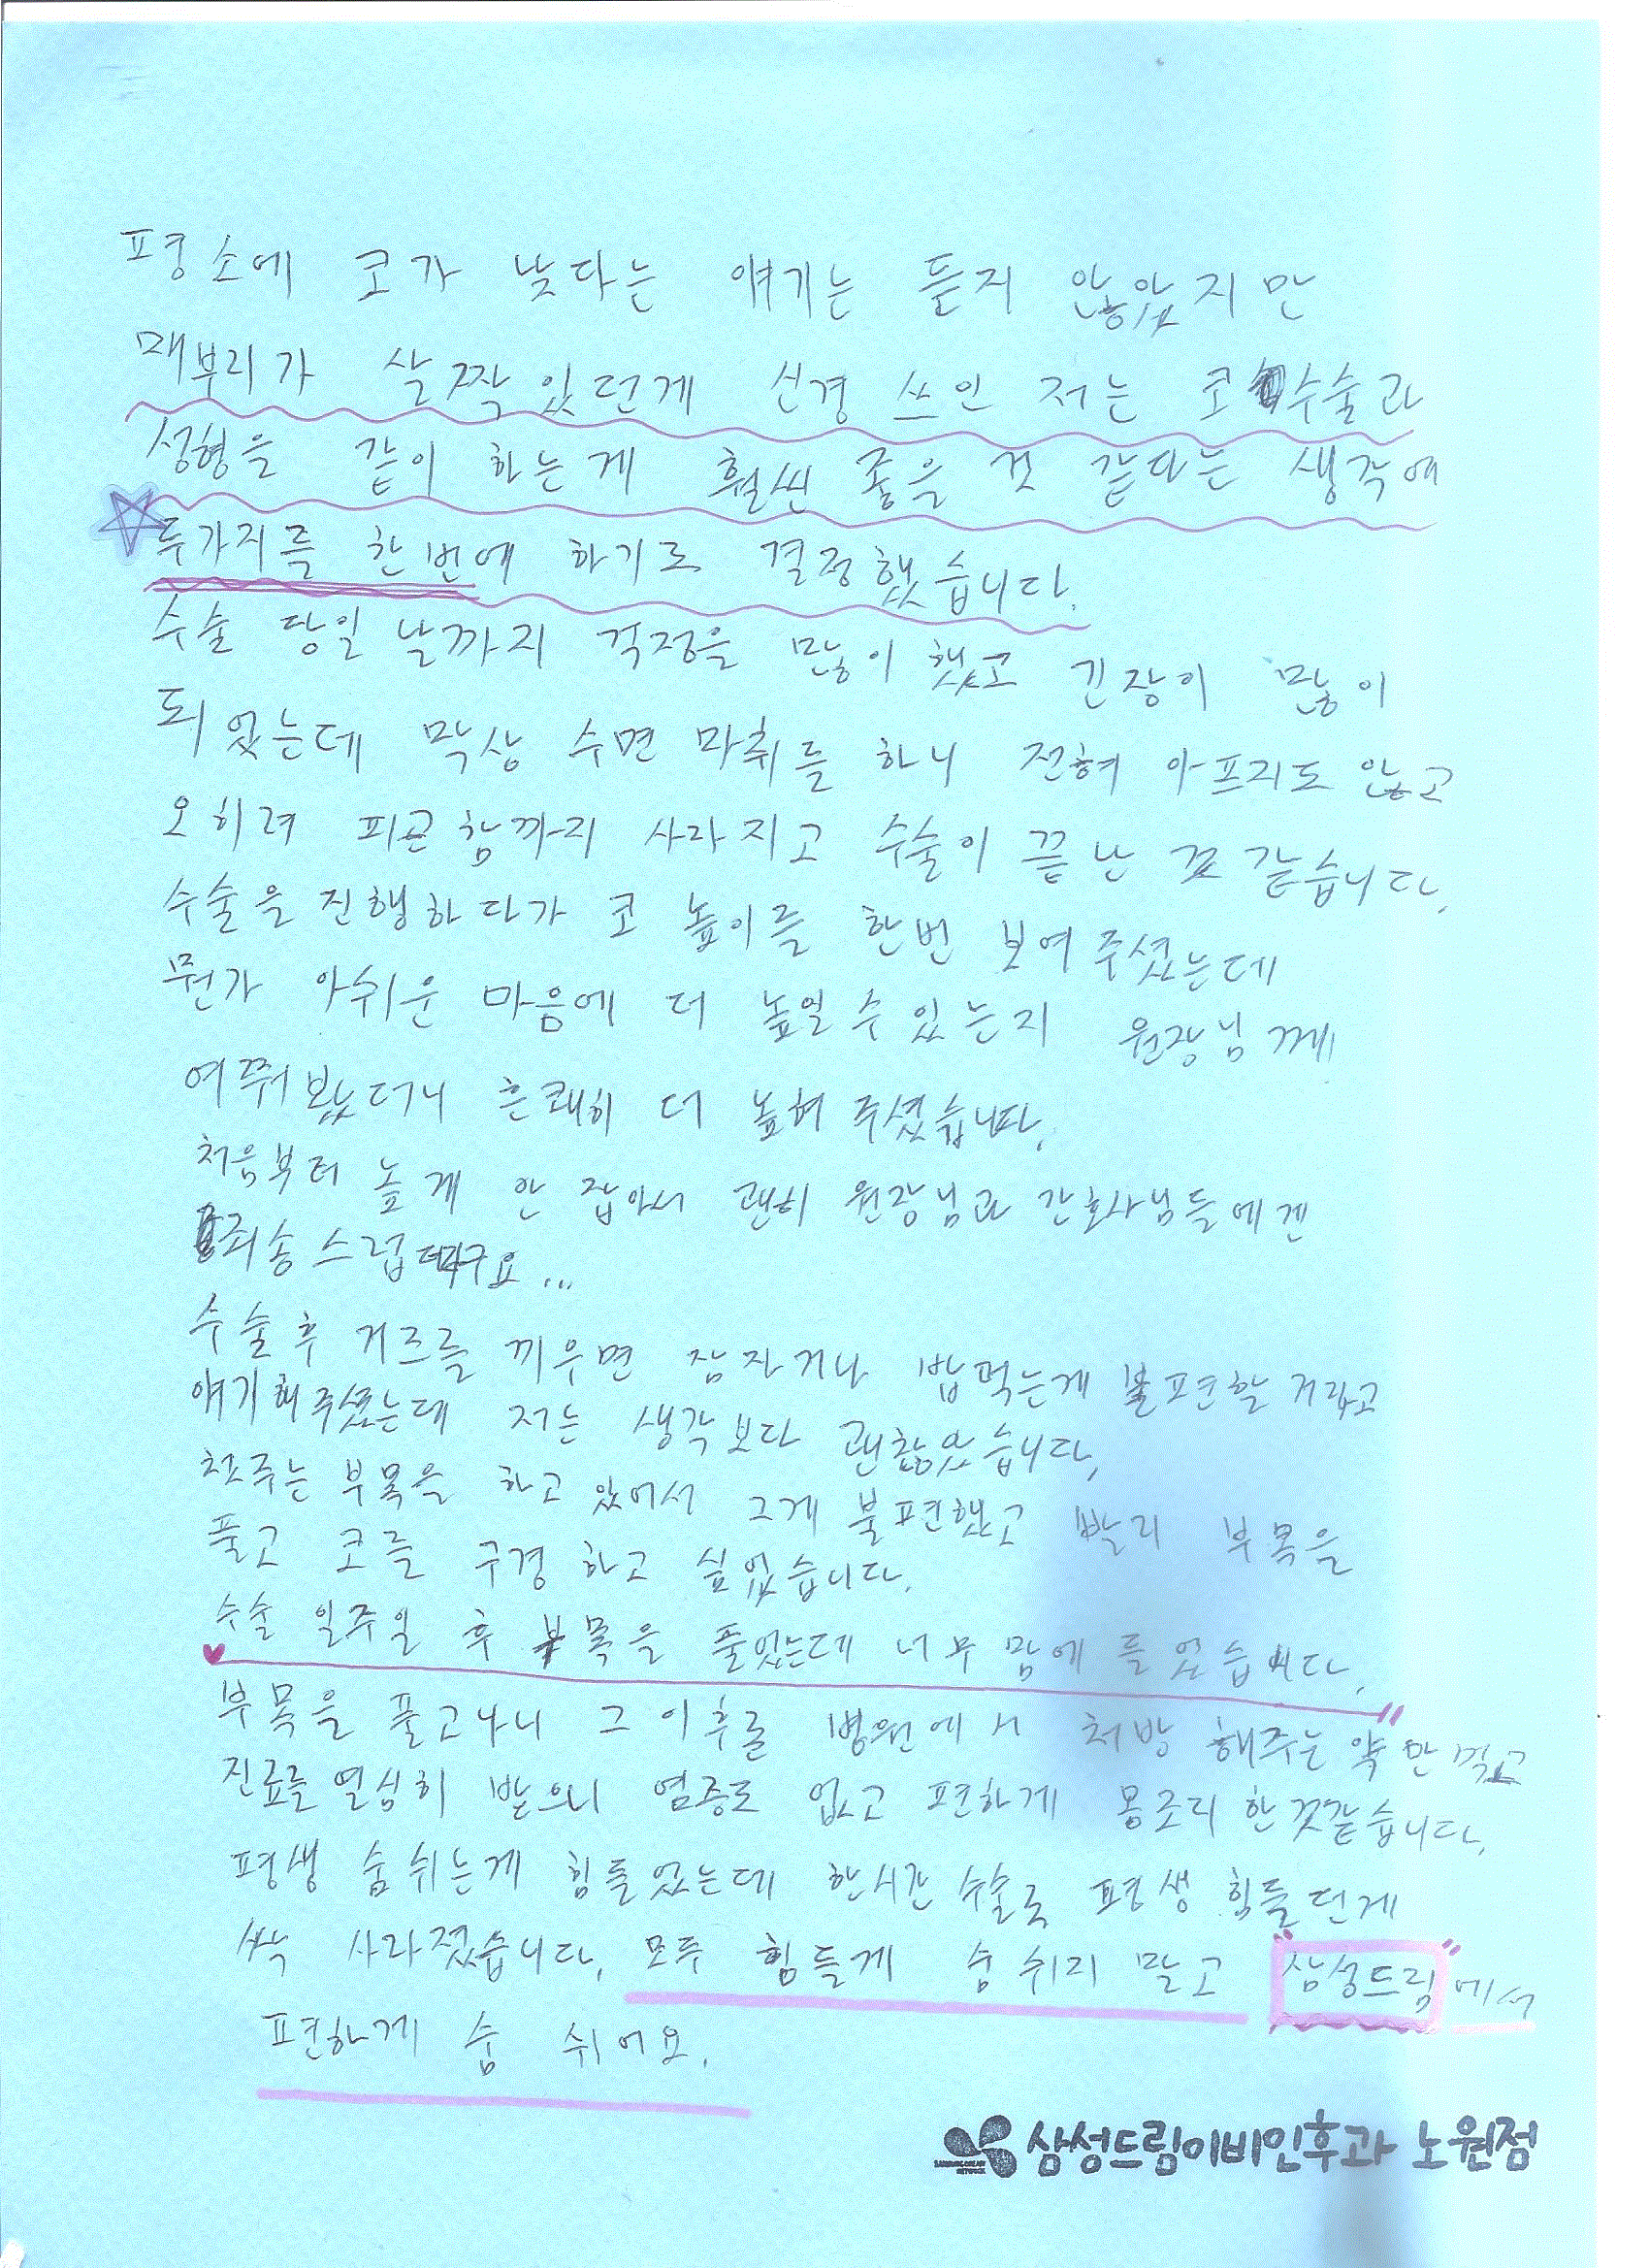 평소에 코가 낮다는 얘기는 듣지 않았지만
매부리가 살짝 있던게 신경 쓰인 저는 코수술과
성형을 같이 하는게 훨씬 좋을 것 같다는 생각에
두가지를 한번에 하기로 결정했습니다.
수술 당일 날까지 걱정을 많이 했고 긴장이 많이
되었는데 막상 수면 마취를 하니 전혀 아프지도 않고
오히려 피곤함까지 사라지고 수술이 끝난 것 같습니다.
수술을 진행하다가 코 높이를 한번 보여주셨는데
뭔가 아쉬운 마음에 더 높일 수 있는지 원장님께
여쭤봤더니 흔쾌히 더 높혀 주셨습니다.
처음부터 높게 안 잡아서 괜히 원장님과 간호사님들에겐
죄송스럽더라구요...
수술후 거즈를 끼우면 잠자거나 밥먹는게 불편할 거라고
얘기해주셨는데 저는 생각보다 괜찮았습니다.
첫주는 부목을 하고 있어서 그게 불편했고 빨리 부목을
풀고 코를 구경하고 싶었습니다.
수술 일주일 후 부목을 풀었는데 너무 맘에 들었습니다.
부목을 풀고나니 그 이후론 병원에서 처방 해주는 약만 먹고
진료를 열심히 받으니 염증도 없고 편하게 몸조리 한것같습니다.
평생 숨쉬는게 힘들었는데 한시간 수술로 평생 힘들던게
싹 사라졌습니다. 모두 힘들게 숨 쉬지 말고 "삼성드림"에서
편하게 숨 쉬어요.
삼성드림이비인후과 노원점